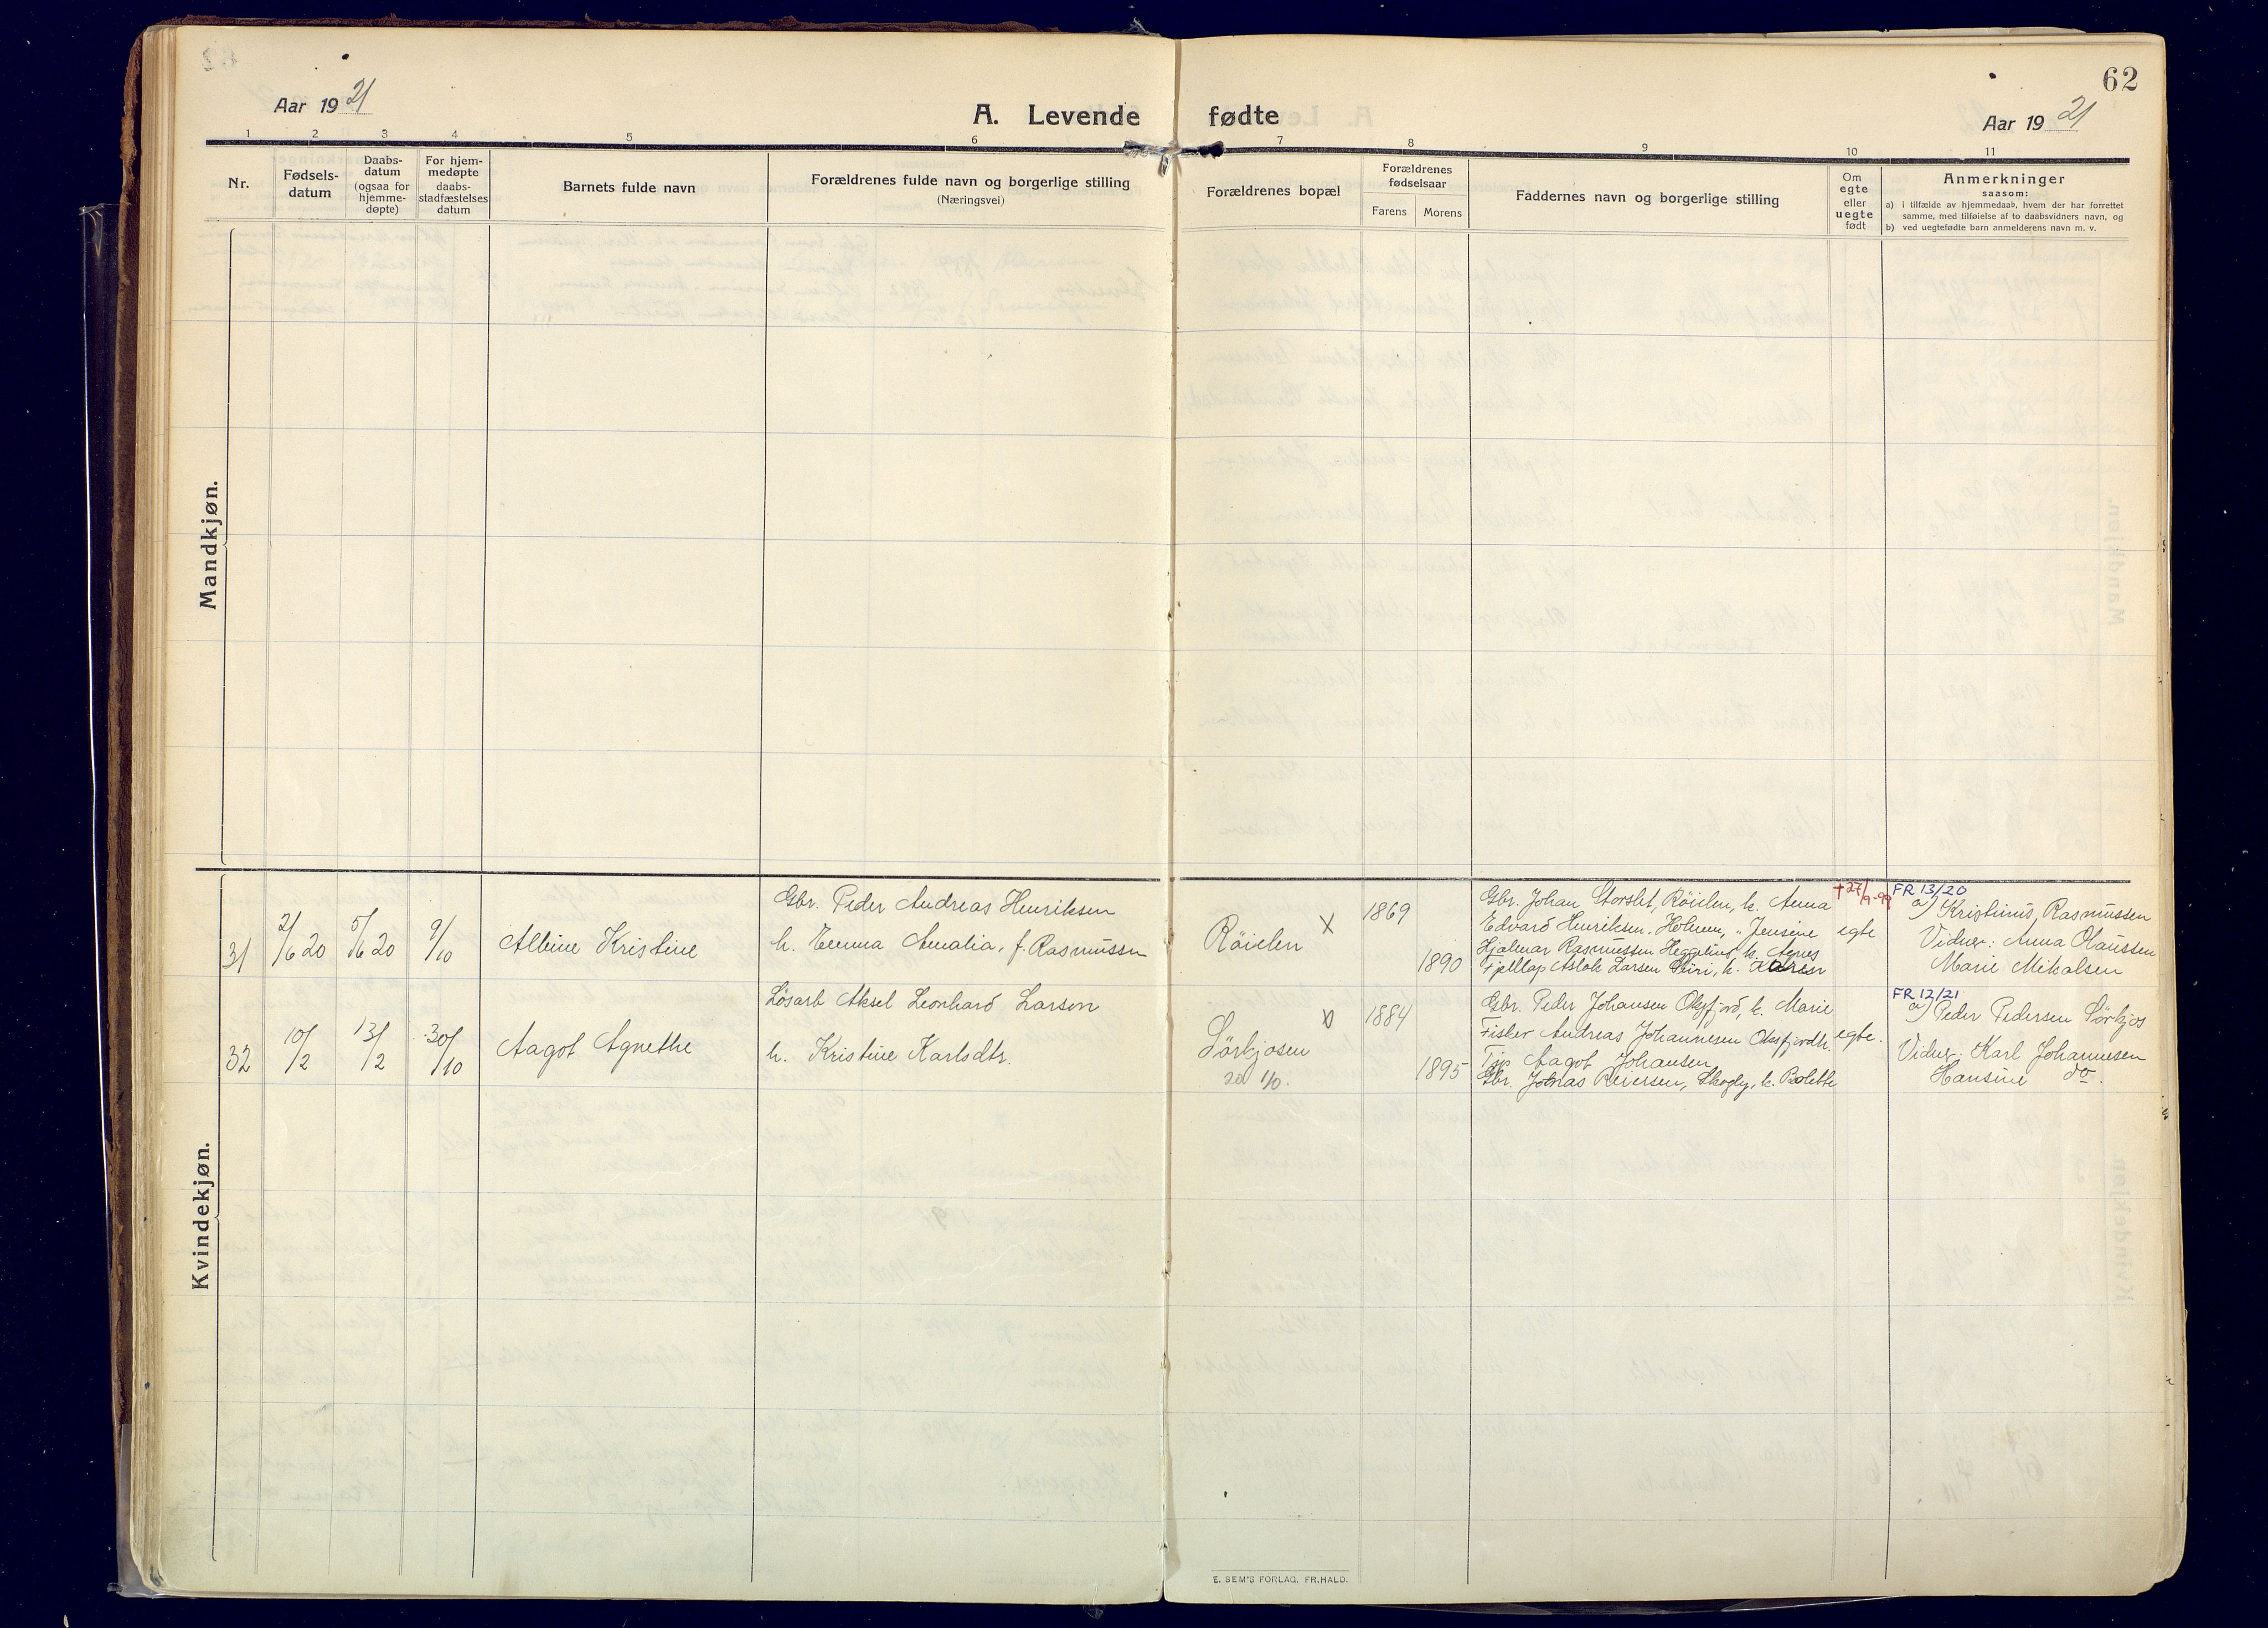 62
Aar 1921
A. Levende fødte
Aar 1921
1 2 3 4 5 6 7 8 9 10 11
Nr.
Fødsels-
datum
Daabs-
datum
(ogsaa for
hjemme-
døpte)
For hjem-
medøpte
daabs-
stadfæstelses
datum
Barnets fulde navn
Forældrenes fulde navn og borgerlige stilling
(Næringsvei)
Forældrenes bopæl
Forældrenes
fødselsaar
Farens Morens
Faddernes navn og borgerlige stilling
Om
egte
eller
uegte
født
Anmerkninger
saasom:
a) i tilfælde av hjemmedaab, hvem der har forrettet
samme, med tilføielse af to daabsvidners navn, og
b) ved uegtefødte barn anmelderens navn m. v.
Mandkjøn.
Kvindekjøn.
31
2/6 20
5/6 20
9/10
Albine Kristine
Gbr. Peder Andreas Henriksen
h. Emma Amalia, f. Rasmussen
Röielen X
1869
1890
Gbr. Johan Storslet, Röielen, h. Anna
Edvard Henriksen, Holmen, „ Jensine
Hjalmar Rasmussen Heggelund, h. Agnes
Fjellap Aslak Larsen Siiri, h. Karen
†27/9-99
egte
FR 13/20
a) Kristinus Rasmussen
Vidner: Anna Olaussen
Marie Mikalsen
32
10/2
13/2
30/10
Aagot Agnethe
Løsarb Aksel Leonhard Larsen
h. Kristine Karlsdtr.
Sörkjosen
20 1/0.
1884
1895
Gbr. Peder Johansen Oksfjord, h. Marie
Fisker Andreas Johannesen Oksfjordh.
Tjp. Aagot Johansen
Gbr. Johas Reiersen, Skogly, h. Bolette
egte.
FR 12/21
a) Peder Pedersen Sörkjos
Vidner: Karl Johannesen
Hansine do.
E. SEM'S FORLAG, FR.HALD.